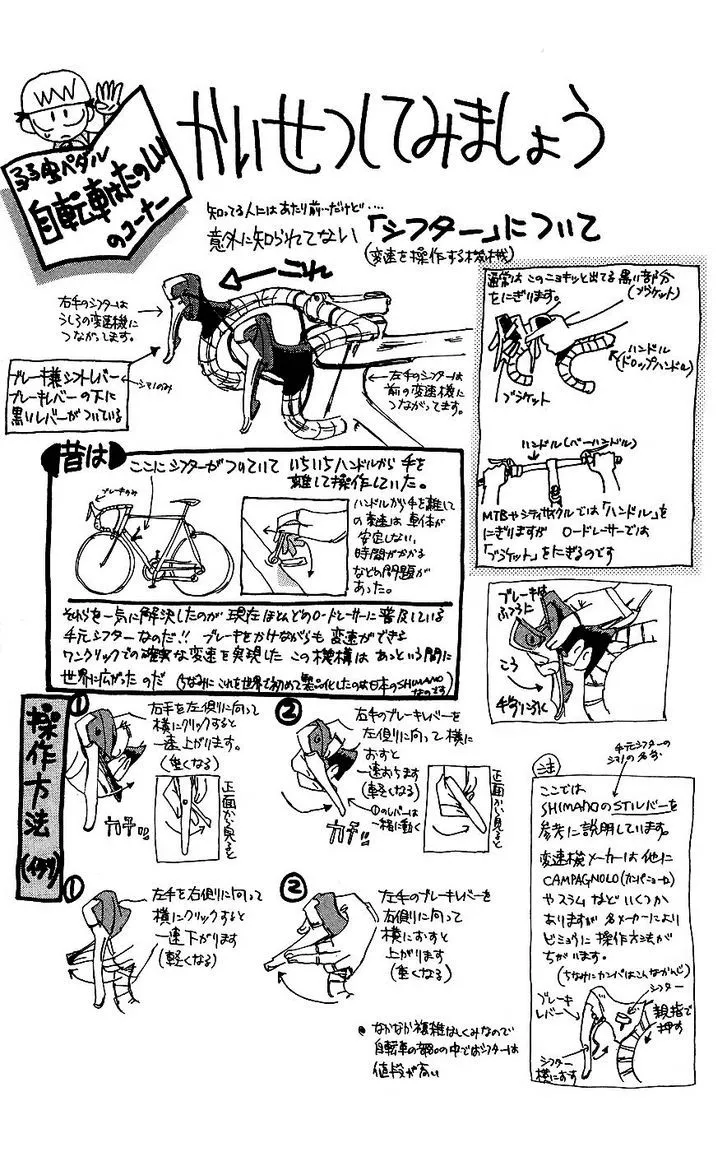 かいせつしてみましょう
弱虫ペダル
自転車はたのしい
のコーナー
知ってる人にはあたり前…だけど‥‥
意外に知られてない「シフター」について
(変速を操作する機械)
これ
右手のシフターは
うしろの変速機に
つながってます。
ブレーキ兼シフトレバー
ブレーキレバーの下に
黒いレバーがついている
シマノのみ
左手のシフターは
前の変速機に
つながってます。
通常はこのニョキッと出てる黒い部分
(ブラケット)
をにぎります。
ハンドル
(ドロップハンドル)
ブラケット
ハンドル(バーハンドル)
MTBやシティサイクルでは「ハンドル」を
にぎりますが ロードレーサーでは
「ブラケット」をにぎるのです
昔は
ここにシフターがついていて いちいちハンドルから手を
離して操作していた。
ブレーキのみ
ハンドルから手を離して
の変速は 車体が
安定しない、
時間がかかる
などの問題が
あった。
それらを一気に解決したのが 現在ほとんどのロードレーサーに普及している
手元シフターなのだ!! ブレーキをかけながらも 変速ができる
ワンクリックでの確実な変速を実現した この機構は あっという間に
世界に広がったのだ (ちなみに これを世界で初めて製品化したのは日本のSHIMANO
なのです)
ブレーキは
ふつうに
こう
手前に引く
操作方法
(例)
①
右手を左側に向って
横にクリックすると
一速上がります。
(重くなる)
正面から見ると
②
右手のブレーキレバーを
左側に向って横に
おすと
一速おちます
(軽くなる)
①のレバーは
一緒に動く
正面から見ると
①
左手を右側に向って
横にクリックすると
一速下がります
(軽くなる)
②
左手のブレーキレバーを
右側に向って
横におすと
上がります
(重くなる)
なかなか複雑なしくみなので
自転車の部品の中ではシフターは
値段が高い
注
手元シフターの
シマノの名称
ここでは
SHIMANOのSTIレバーを
参考に説明しています。
変速機メーカーは他に
CAMPAGNOLO(カンパニョーロ)
やスラムなどいくつか
ありますが 各メーカーにより
ビミョウに操作方法が
ちがいます。
(ちなみにカンパはこんなかんじ)
ブレーキ
レバー
シフター
親指で
押す
シフター
横におす